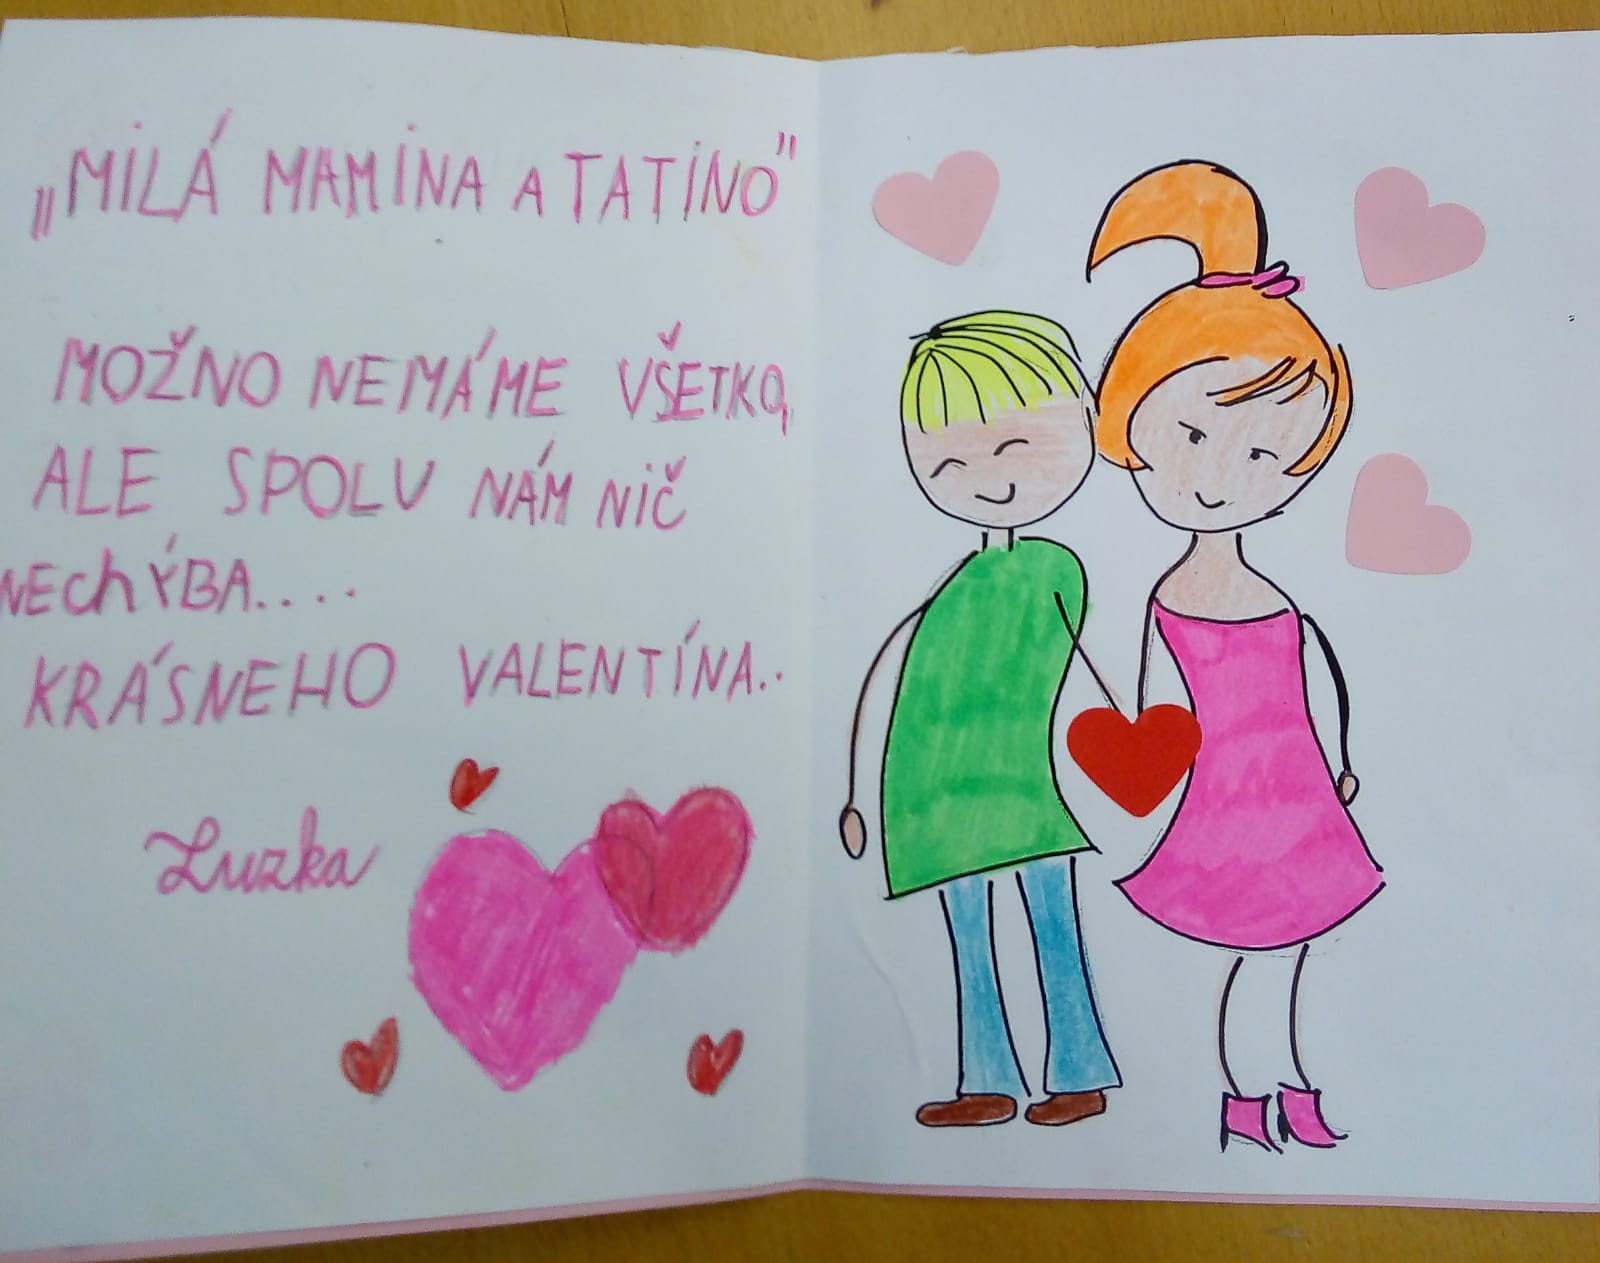 „MILÁ MAMINA A TATINO"
MOŽNO NEMÁME VŠETKO,
ALE SPOLU NÁM NIČ
NEChÝBA....
KRÁSNEHO VALENTÍNA..
Luzka